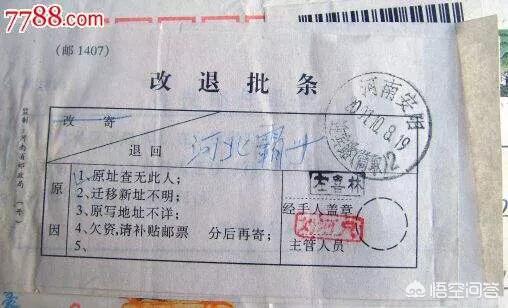 7788.com
(邮1407)
改退批条
河南安阳
改寄
退回 河北霸
原因
1、原址查无此人;
2、迁移新址不明;
3、原写地址不详;
4、欠资,请补贴邮票 分后再寄;
5、
经手人盖章
主管人员
悟空问答